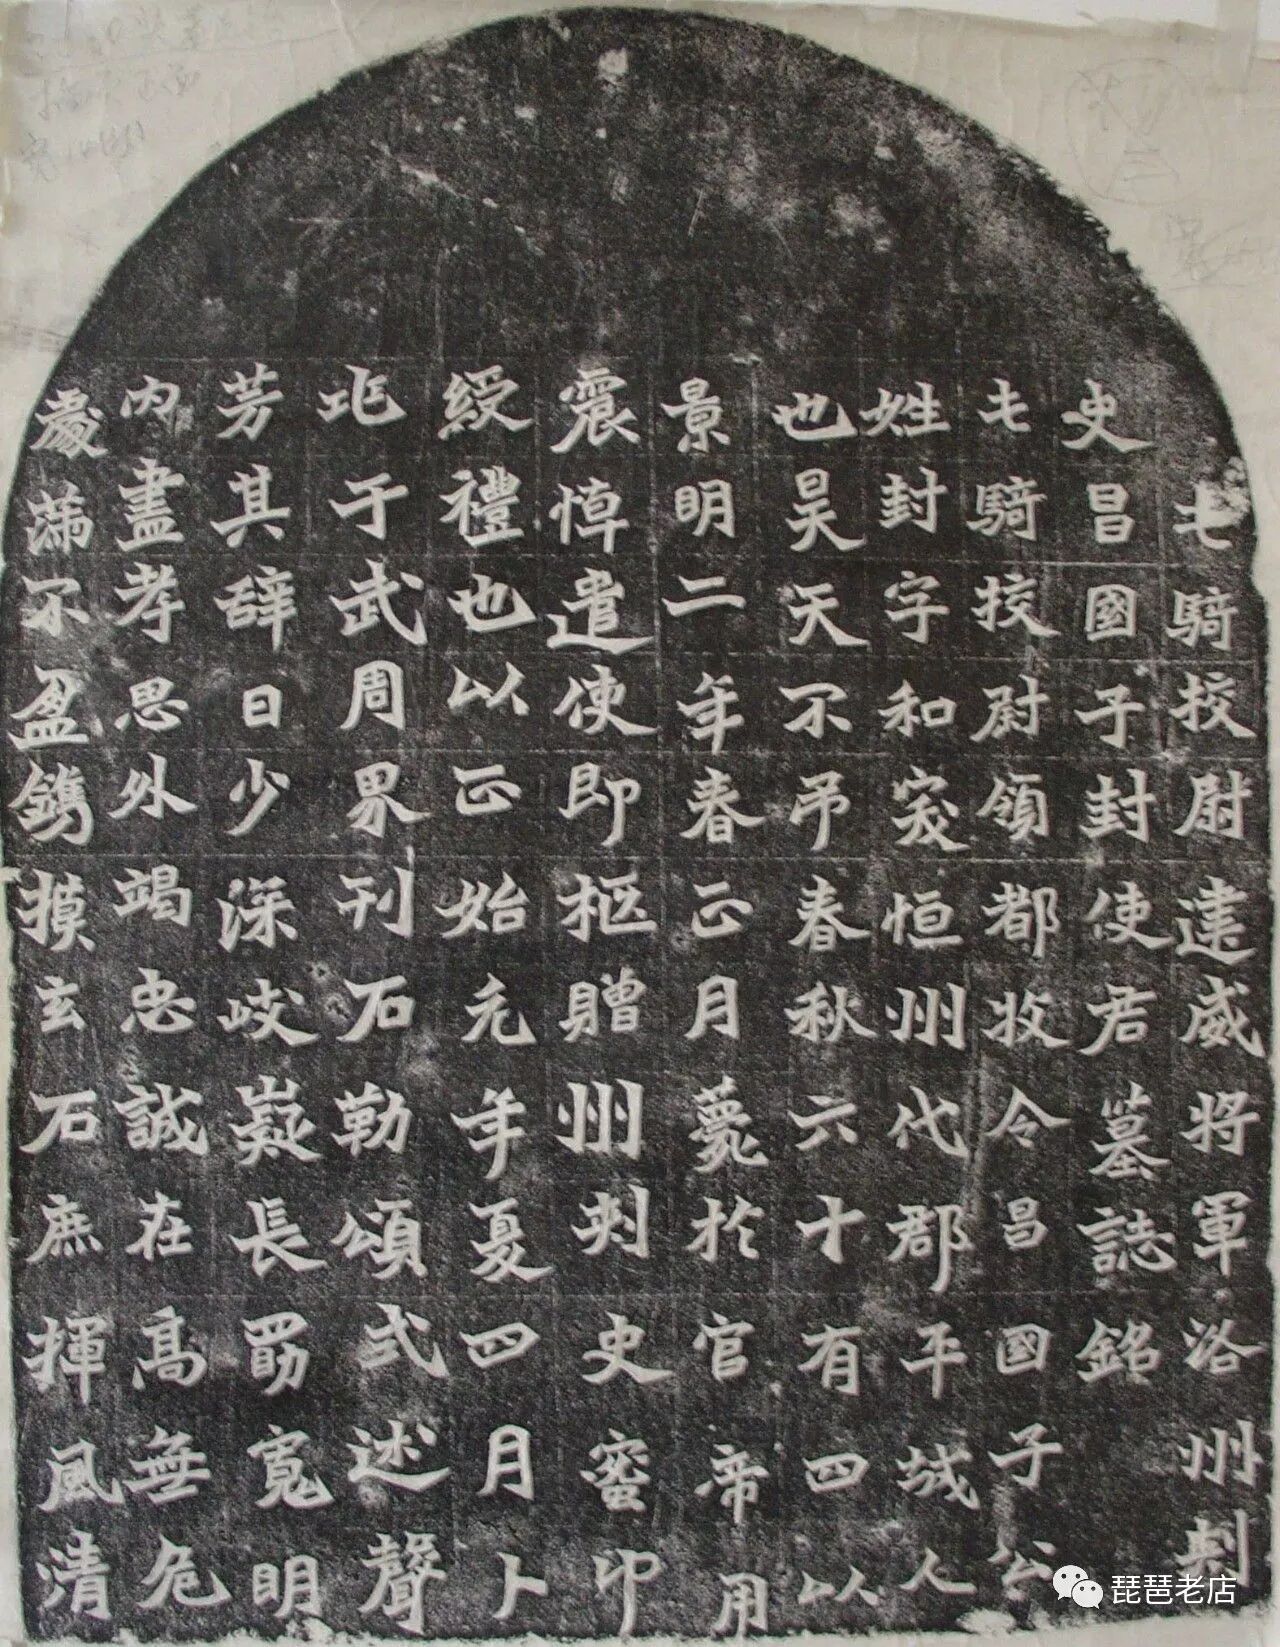 屯騎挍尉建威將軍洛州刺
史昌國子封使君墓誌銘
屯騎挍尉領都牧令昌國子公
姓封字和突恒州代郡平城人
也昊天不弔春秋六十有四以
景明二年春正月薨於官帝用
震悼遣使即柩贈州刾史蜜印
綬禮也以正始元年夏四月卜
兆于武周界刊石勒頌式述聲
芳其辞曰少深岐嶷長勗寬明
內盡孝思外竭忠誠在高無危
處滿不盈鐫摸玄石庶揮風清
琵琶老店